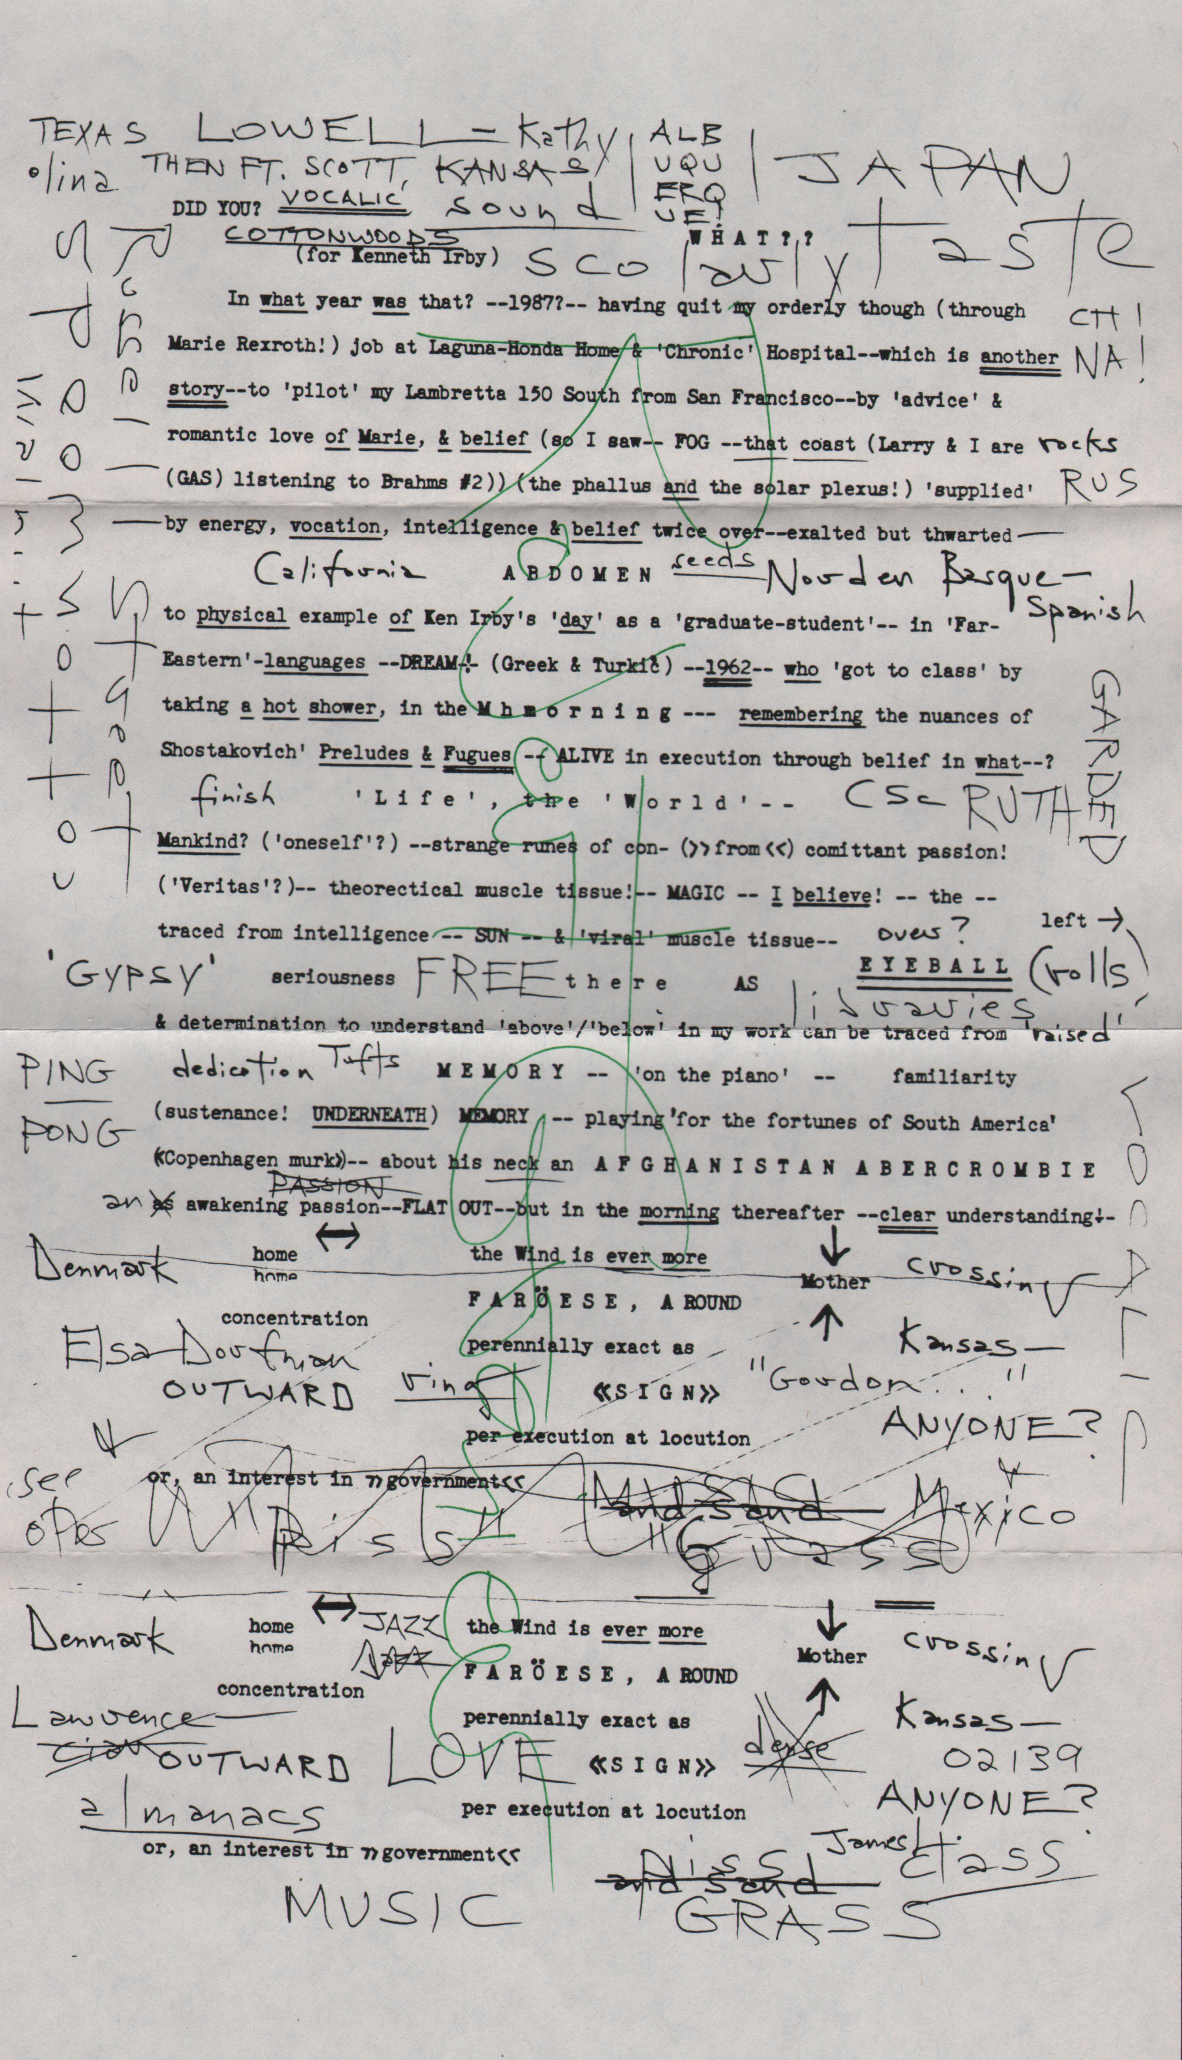 TEXAS LOWELL — Kathy ALB
UQU
ERQ
UE! JAPAN
olina THEN FT. SCOTT, KANSAS
DID YOU? VOCALIC sound WHAT??
taste
COTTONWOODS
(for Kenneth Irby) scolarly
In what year was that? --1987?-- having quit my orderly though (through
CH!
Marie Rexroth!) job at Laguna-Honda Home & 'Chronic' Hospital--which is another
NA!
story--to 'pilot' my Lambretta 150 South from San Francisco--by 'advice' &
romantic love of Marie, & belief (so I saw-- FOG --that coast (Larry & I are rocks
(GAS) listening to Brahms #2)) (the phallus and the solar plexus!) 'supplied' RUS
—by energy, vocation, intelligence & belief twice over--exalted but thwarted—
California ABDOMEN seeds Norden Basque—
Spanish
to physical example of Ken Irby's 'day' as a 'graduate-student'-- in 'Far-
Eastern'-languages --DREAM-- (Greek & Turkic) --1962-- who 'got to class' by
taking a hot shower, in the Mhmorning --- remembering the nuances of
Shostakovich' Preludes & Fugues -- ALIVE in execution through belief in what--?
GARDED
finish 'Life', the 'World'-- CSC RUTH
Mankind? ('oneself'?) --strange runes of con- (>>from<<) comittant passion!
('Veritas'?)-- theorectical muscle tissue!-- MAGIC -- I believe! -- the --
left →
traced from intelligence -- SUN -- & 'viral' muscle tissue-- over?
'GYPSY' seriousness FREE there AS EYEBALL (rolls
libraries
& determination to understand 'above'/'below' in my work can be traced from 'raised'
PING
PONG
dedication Tufts MEMORY -- 'on the piano' -- familiarity
(sustenance! UNDERNEATH) MEMORY -- playing 'for the fortunes of South America'
«Copenhagen murk»-- about his neck an AFGHANISTAN ABERCROMBIE
PASSION
an as awakening passion--FLAT OUT--but in the morning thereafter --clear understanding--
Denmark home ↔ the Wind is ever more ↓ crossing
home Mother
FARÖESE, A ROUND ↑
concentration
Elsa Dorfman perennially exact as Kansas—
OUTWARD ring «SIGN» "Gordon..."
per execution at locution ANYONE?
see or, an interest in »government«
opes Piss and sand Mexico
Grass
Denmark home ↔ JAZZ the Wind is ever more ↓ crossing
home Mother
FARÖESE, A ROUND ↑
concentration
Lawrence perennially exact as Kansas—
OUTWARD LOVE «SIGN» dense 02139
almanacs per execution at locution ANYONE?
or, an interest in »government« James H.
Piss class
and sand
MUSIC GRASS